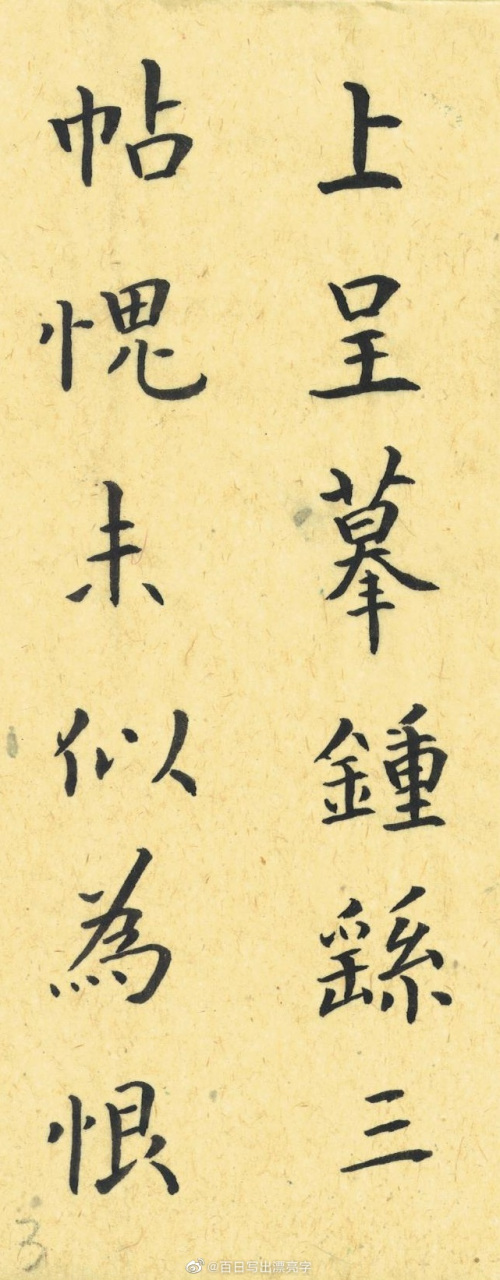 上呈摹鍾繇三
帖愧未似為恨
@百日写出漂亮字